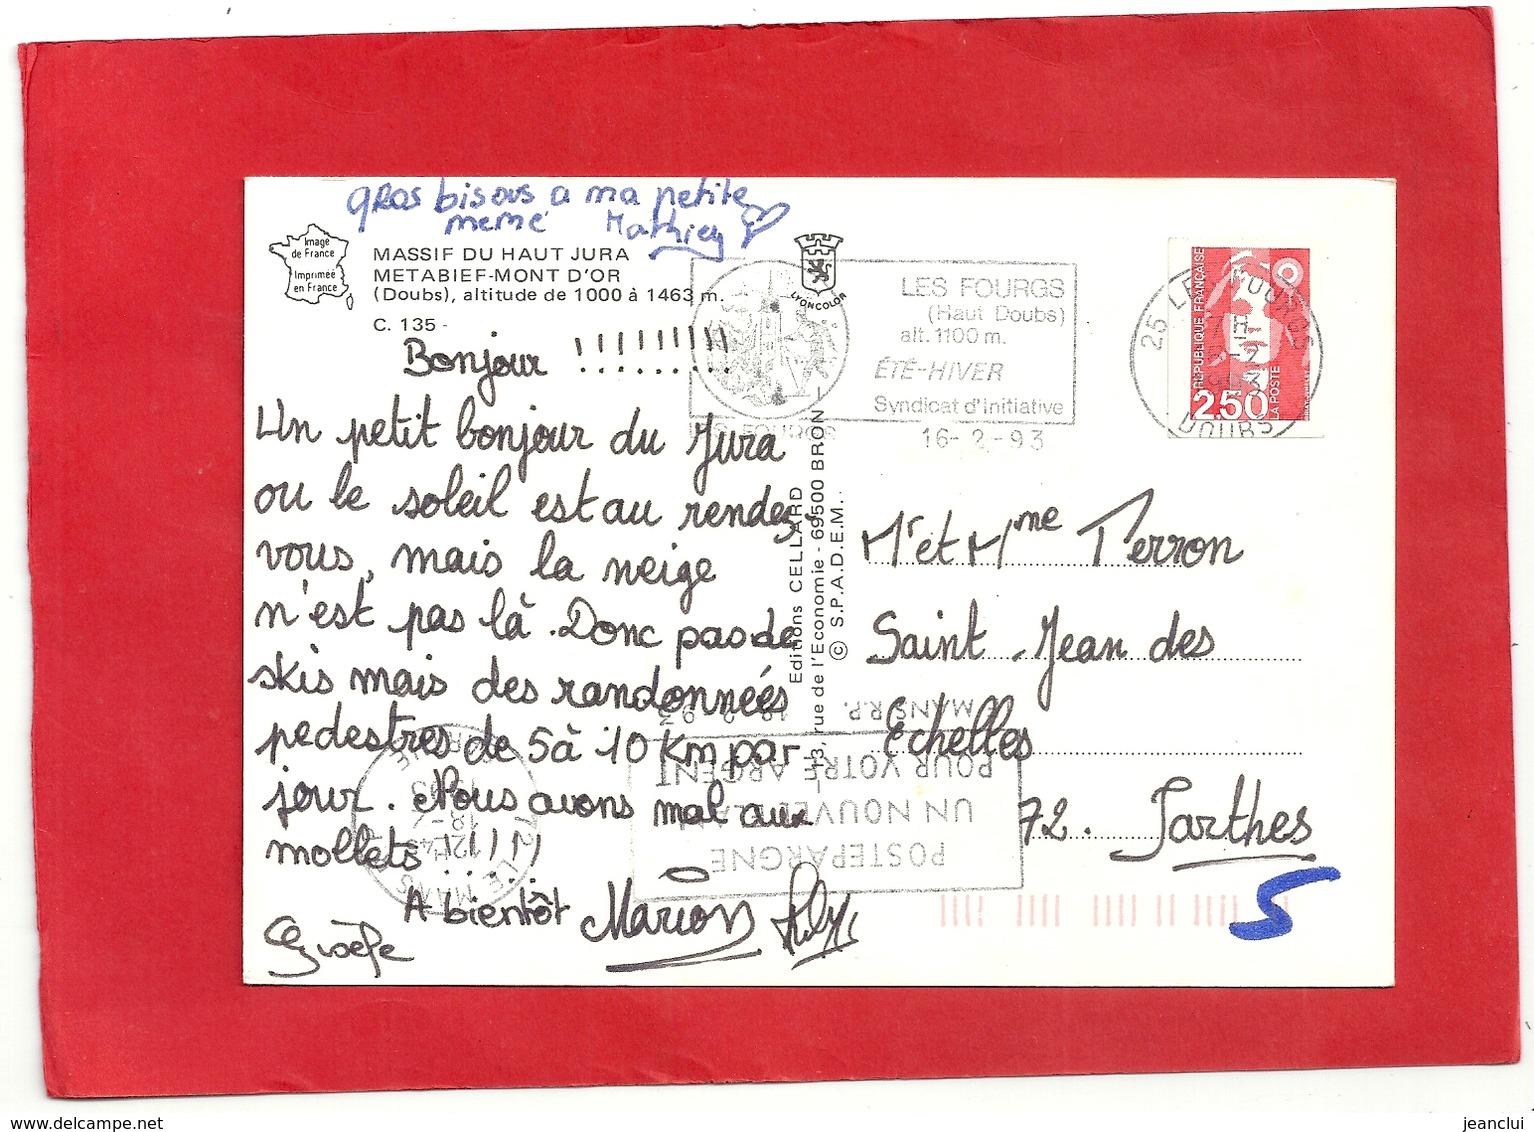 gros bisous a ma petite
memé Mathieu
Image
de France
Imprimée
en France
MASSIF DU HAUT JURA
METABIEF-MONT D'OR
(Doubs), altitude de 1000 à 1463 m.
C. 135 -
LYONCOLOR
LES FOURGS
(Haut Doubs)
alt. 1100 m.
ÉTÉ-HIVER
Syndicat d'Initiative
16-2-93
25 LES FOURGS
DOUBS
REPUBLIQUE FRANÇAISE
2,50
LA POSTE
Bonjour !!!!!!!!!
Un petit bonjour du Jura
ou le soleil est au rendez
vous, mais la neige
n'est pas là. Donc pas de
skis mais des randonnées
pedestres de 5 à 10 Km par
jour. Nous avons mal aux
mollets !!!!!
A bientôt Marion
Editions CELLARD
13, rue de l'Economie - 69500 BRON
© S.P.A.D.E.M.
Mr et Mme Perron
Saint Jean des
Echelles
72. Sarthes
MANS R.P. 18 2 93
POUR VOTRE ARGENT
UN NOUVEL
POSTEPARGNE
72 LE MANS
12H45
18-2
S
delcampe.net
jeanclui